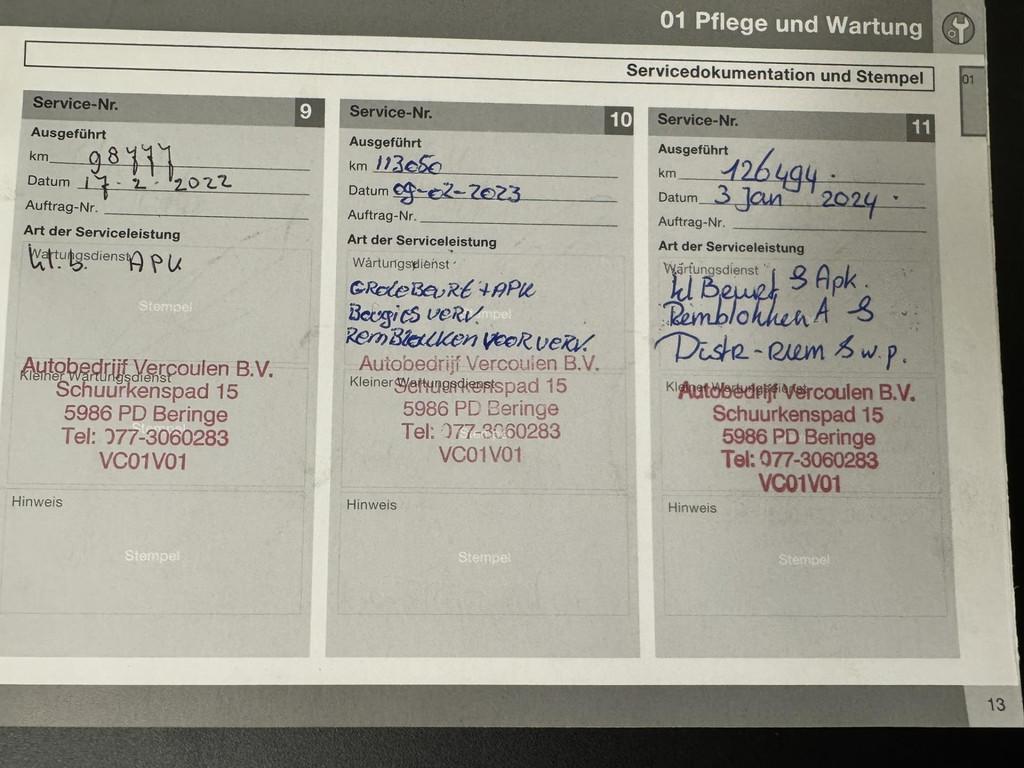 01 Pflege und Wartung
Servicedokumentation und Stempel
01
Service-Nr. 9
Ausgeführt
km 98777
Datum 17-2-2022
Auftrag-Nr.
Art der Serviceleistung
Wartungsdienst
kl. b. APK
Stempel
Autobedrijf Vercoulen B.V.
Kleiner Wartungsdienst
Schuurkenspad 15
5986 PD Beringe
Tel: 077-3060283
VC01V01
Hinweis
Stempel
Service-Nr. 10
Ausgeführt
km 113050
Datum 09-02-2023
Auftrag-Nr.
Art der Serviceleistung
Wartungsdienst
GROTE BEURT + APK
Bougies VERV.
REMBlokken VOOR VERV.
Autobedrijf Vercoulen B.V.
Kleiner Wartungsdienst
Schuurkenspad 15
5986 PD Beringe
Tel: 077-3060283
VC01V01
Hinweis
Stempel
Service-Nr. 11
Ausgeführt
km 126494.
Datum 3 Jan 2024.
Auftrag-Nr.
Art der Serviceleistung
Wartungsdienst
kl Beurt & Apk.
Remblokken A
Distr-Riem & w.p.
Kleiner Wartungsdienst
Autobedrijf Vercoulen B.V.
Schuurkenspad 15
5986 PD Beringe
Tel: 077-3060283
VC01V01
Hinweis
Stempel
13